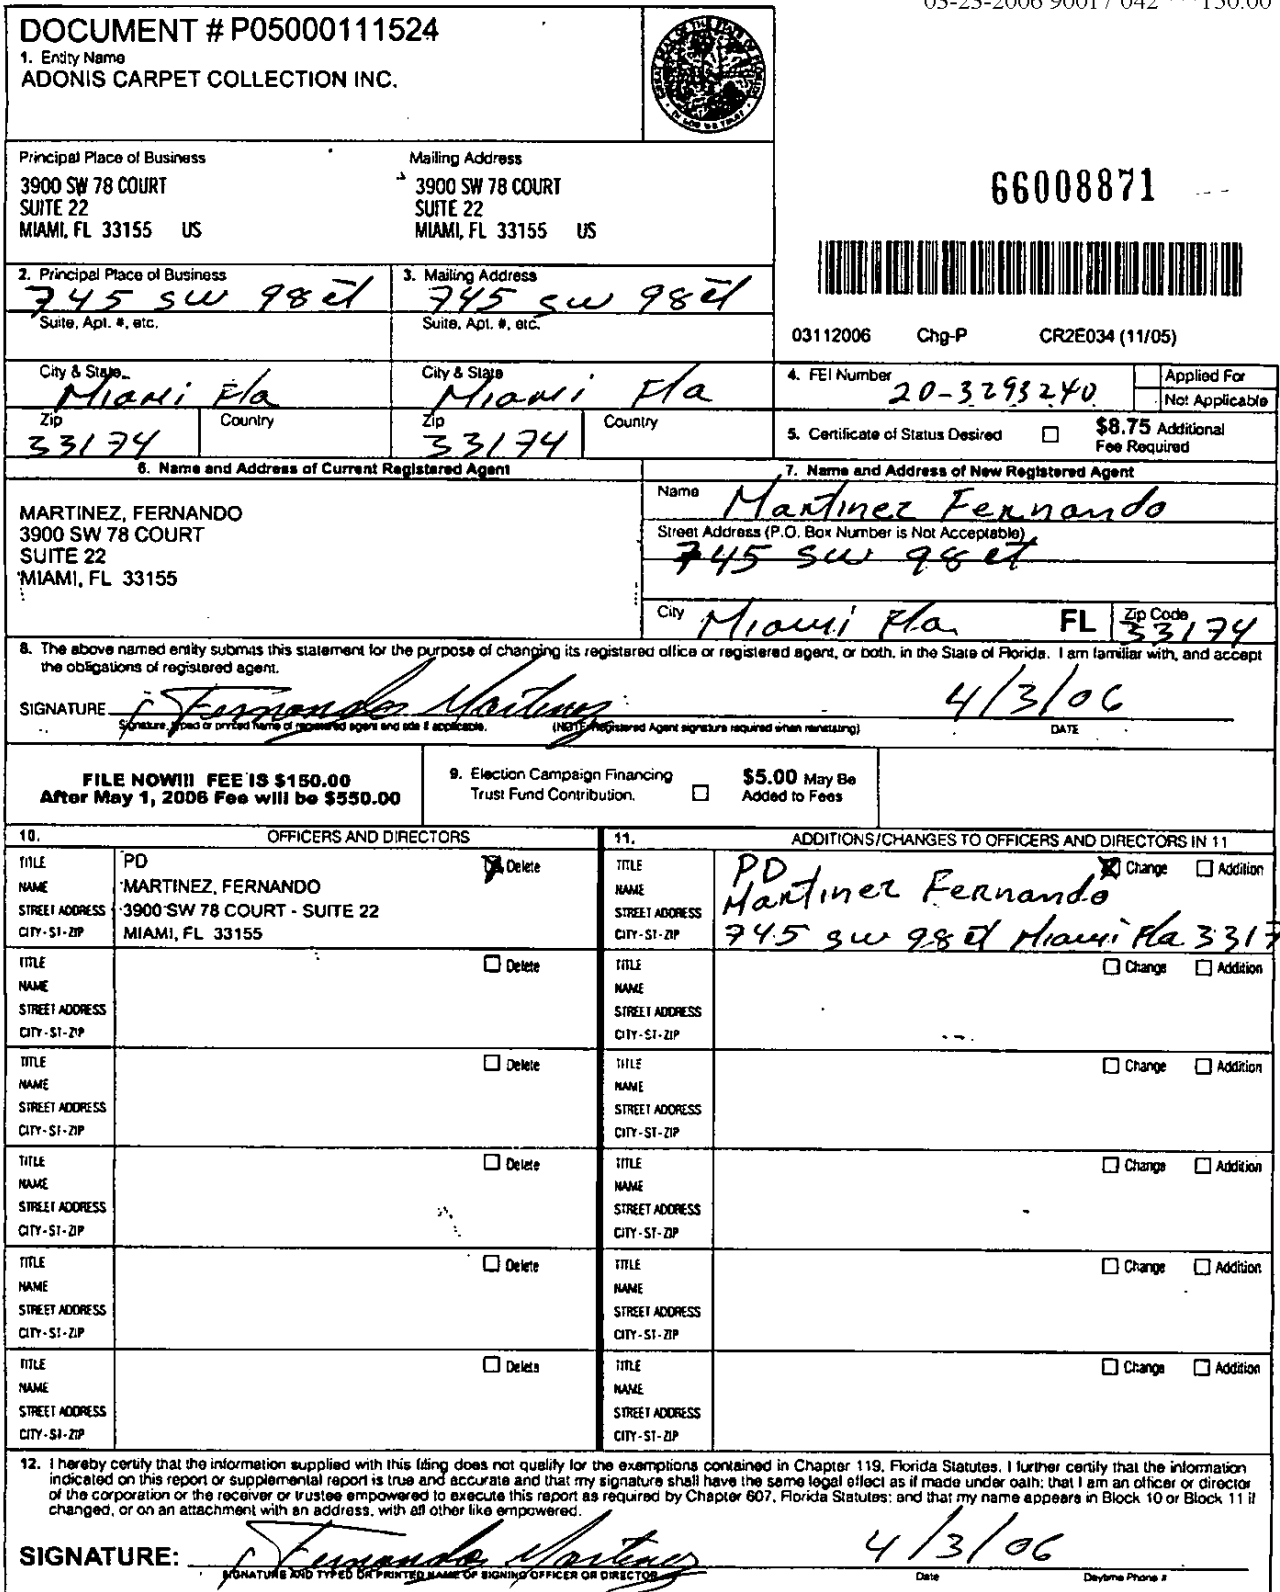 DOCUMENT # P05000111524
1. Entity Name
ADONIS CARPET COLLECTION INC.
Principal Place of Business
3900 SW 78 COURT
SUITE 22
MIAMI, FL 33155 US
Mailing Address
3900 SW 78 COURT
SUITE 22
MIAMI, FL 33155 US
66008871
2. Principal Place of Business
745 SW 98 ct
Suite, Apt. #, etc.
City & State
Miami Fla
Zip
33174
Country
3. Mailing Address
745 SW 98 ct
Suite, Apt. #, etc.
City & State
Miami Fla
Zip
33174
Country
03112006 Chg-P CR2E034 (11/05)
4. FEI Number
20-3293240
Applied For
Not Applicable
5. Certificate of Status Desired
$8.75 Additional
Fee Required
6. Name and Address of Current Registered Agent
MARTINEZ, FERNANDO
3900 SW 78 COURT
SUITE 22
MIAMI, FL 33155
7. Name and Address of New Registered Agent
Name Martinez Fernando
Street Address (P.O. Box Number is Not Acceptable)
745 SW 98 ct
City Miami Fla FL Zip Code 33174
8. The above named entity submits this statement for the purpose of changing its registered office or registered agent, or both, in the State of Florida. I am familiar with, and accept
the obligations of registered agent.
SIGNATURE Fernando Martinez 4/3/06
Signature, typed or printed name of registered agent and title if applicable. (NOTE: Registered Agent signature required when reinstating) DATE
FILE NOW!!! FEE IS $150.00
After May 1, 2006 Fee will be $550.00
9. Election Campaign Financing
Trust Fund Contribution.
$5.00 May Be
Added to Fees
10. OFFICERS AND DIRECTORS
TITLE PD Delete
NAME MARTINEZ, FERNANDO
STREET ADDRESS 3900 SW 78 COURT - SUITE 22
CITY-ST-ZIP MIAMI, FL 33155
TITLE Delete
NAME
STREET ADDRESS
CITY-ST-ZIP
TITLE Delete
NAME
STREET ADDRESS
CITY-ST-ZIP
TITLE Delete
NAME
STREET ADDRESS
CITY-ST-ZIP
TITLE Delete
NAME
STREET ADDRESS
CITY-ST-ZIP
TITLE Delete
NAME
STREET ADDRESS
CITY-ST-ZIP
11. ADDITIONS/CHANGES TO OFFICERS AND DIRECTORS IN 11
TITLE PD Change Addition
NAME Martinez Fernando
STREET ADDRESS
CITY-ST-ZIP 745 SW 98 ct Miami Fla 3317
TITLE Change Addition
NAME
STREET ADDRESS
CITY-ST-ZIP
TITLE Change Addition
NAME
STREET ADDRESS
CITY-ST-ZIP
TITLE Change Addition
NAME
STREET ADDRESS
CITY-ST-ZIP
TITLE Change Addition
NAME
STREET ADDRESS
CITY-ST-ZIP
TITLE Change Addition
NAME
STREET ADDRESS
CITY-ST-ZIP
12. I hereby certify that the information supplied with this filing does not qualify for the exemptions contained in Chapter 119, Florida Statutes. I further certify that the information
indicated on this report or supplemental report is true and accurate and that my signature shall have the same legal effect as if made under oath; that I am an officer or director
of the corporation or the receiver or trustee empowered to execute this report as required by Chapter 607, Florida Statutes; and that my name appears in Block 10 or Block 11 if
changed, or on an attachment with an address, with all other like empowered.
SIGNATURE: Fernando Martinez 4/3/06
SIGNATURE AND TYPED OR PRINTED NAME OF SIGNING OFFICER OR DIRECTOR Date Daytime Phone #